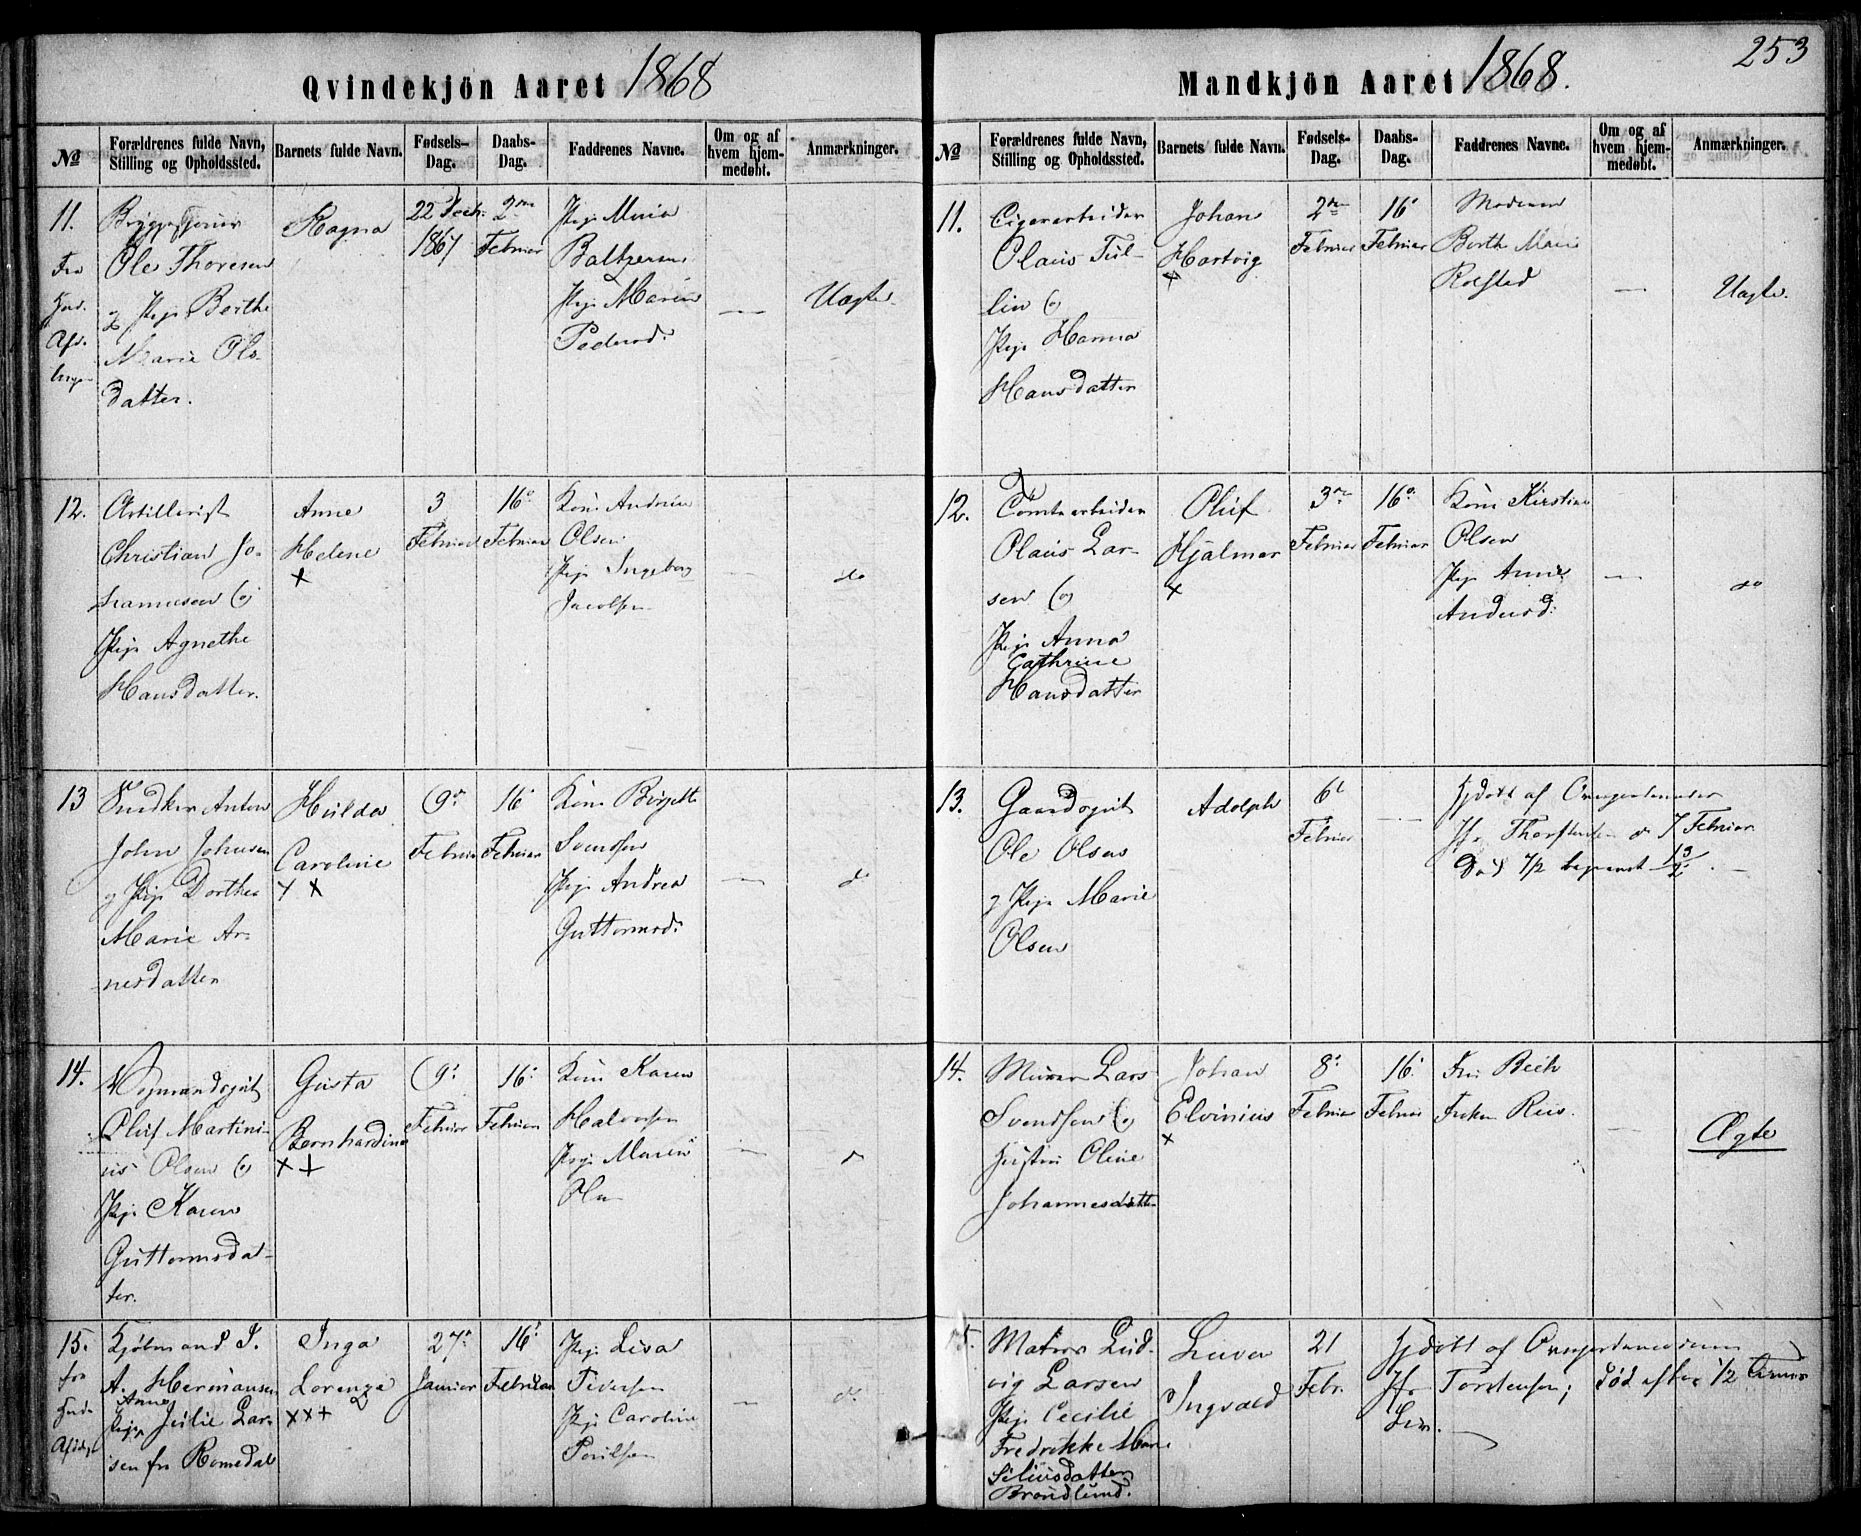 253
Qvindekjön Aaret 1868
№
Forældrenes fulde Navn, Stilling og Opholdssted.
Barnets fulde Navn.
Fødsels-Dag.
Daabs-Dag.
Faddrenes Navne.
Om og af hvem hjem-medøbt.
Anmærkninger.
11.
Fra
Ole Thoresen
Pige Berthe
Marie Ols-
datter.
Ragna
22 Decbr.
1867
2den
Februar
Pige Maria
Pige Maren
Pedersd.
—
Uægte.
12.
Artillerist
Christian Jo-
hannesen og
Pige Agnethe
Hansdatter.
Anne
Helene
×
3
Februar
16
Februar
Kone Andrine
Olsen
Pige Ingeborg
Jacobsen
—
do
13
Snedker Anton
John Johnsen
og Pige Dorthea
Marie Ar-
nesdatter
Hulda
Caroline
× ×
9
Februar
16
Februar
Kone Birgitte
Svendsen
Pige Andrea
Guttormsd.
—
do
14.
Oluf Martini-
us Olsen og
Pige Karen
Guttormsdat-
ter.
Gusta
Bernhardine
× +
9
Februar
16
Februar
Kone Karen
Halvorsen
Pige Maren
Olsen
—
15.
fra
Kjøbmand J.
A. Hermansen
Anne
Pige Julie Lar-
sen fra Romedal
Inga
Lorenza
××+
27
Januar
16
Februar
Pige Lisa
Pedersen
Pige Caroline
Poulsen
—
do
Mandkjön Aaret 1868.
№
Forældrenes fulde Navn, Stilling og Opholdssted.
Barnets fulde Navn.
Fødsels-Dag.
Daabs-Dag.
Faddrenes Navne.
Om og af hvem hjem-medøbt.
Anmærkninger.
11.
Cigararbeider
Olaus Tul-
lin og
Pige Hanna
Hansdatter
Johan
Hartvig
+
2den
Februar
16
Februar
Moderen
Berth Marie
Rolstad
—
Uægte.
12.
Tomtearbeider
Olaus Lar-
sen og
Pige Anna
Cathrine
Hansdatter
Oluf
Hjalmar
×
3
Februar
16
Februar
Kone Kirstine
Olsen
Pige Anne
Andersd.
—
do
13.
Gaardsgut
Ole Olsen
og Pige Marie
Olsen
Adolph
6
Februar
—
Hjdøbt af
Jfr Thorstensen d. 7 Februar
Død 7/2 begravet 13/2.
—
14.
Murer Lars
Svendsen og
Hustru Oline
Johannesdatter
Johan
Elvinius
×
8
Februar
16
Februar
Fru Bech
Frøken Ruus.
—
Ægte
15.
Matros Lud-
vig Larsen
Pige Cecilie
Fredrikke Marie
Siliusdatter
Brandlund.
Ingvald
21
Febr.
Hjdøbt af
Jfr Torstensen; død efter 1/2 Times
Liv.